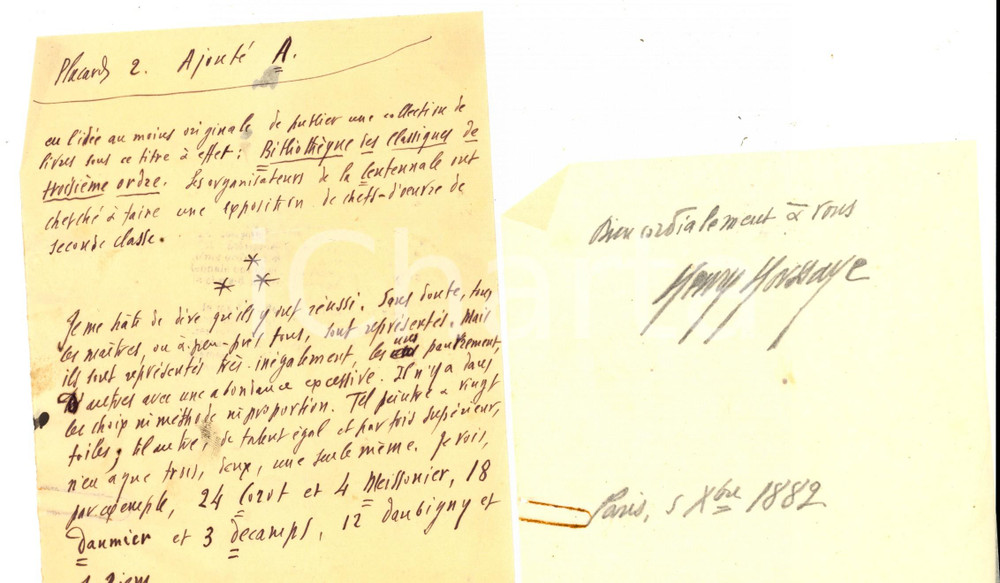 Placard 2. Ajouté A.
eu l'idée au moins originale de publier une collection de
livres sous ce titre à effet : Bibliothèque des classiques de
troisième ordre. Les organisateurs de la Centennale ont
cherché à faire une exposition de chefs-d'œuvre de
seconde classe.
* * *
Je me hâte de dire qu'ils y ont réussi. Sans doute, tous
les maîtres, ou à-peu-près tous, sont représentés. Mais
ils sont représentés très-inégalement, les uns pauvrement,
d'autres avec une abondance excessive. Il n'y a dans
les choix ni méthode ni proportion. Tel peintre a vingt
toiles ; tel autre, de talent égal et parfois supérieur,
n'en a que trois, deux, une seule même. Je vois,
par exemple, 24 Corot et 4 Meissonier, 18
Daumier et 3 Decamps, 12 Daubigny et
Bien cordialement à vous
Henry Houssaye
Paris, 5 Xbre 1882